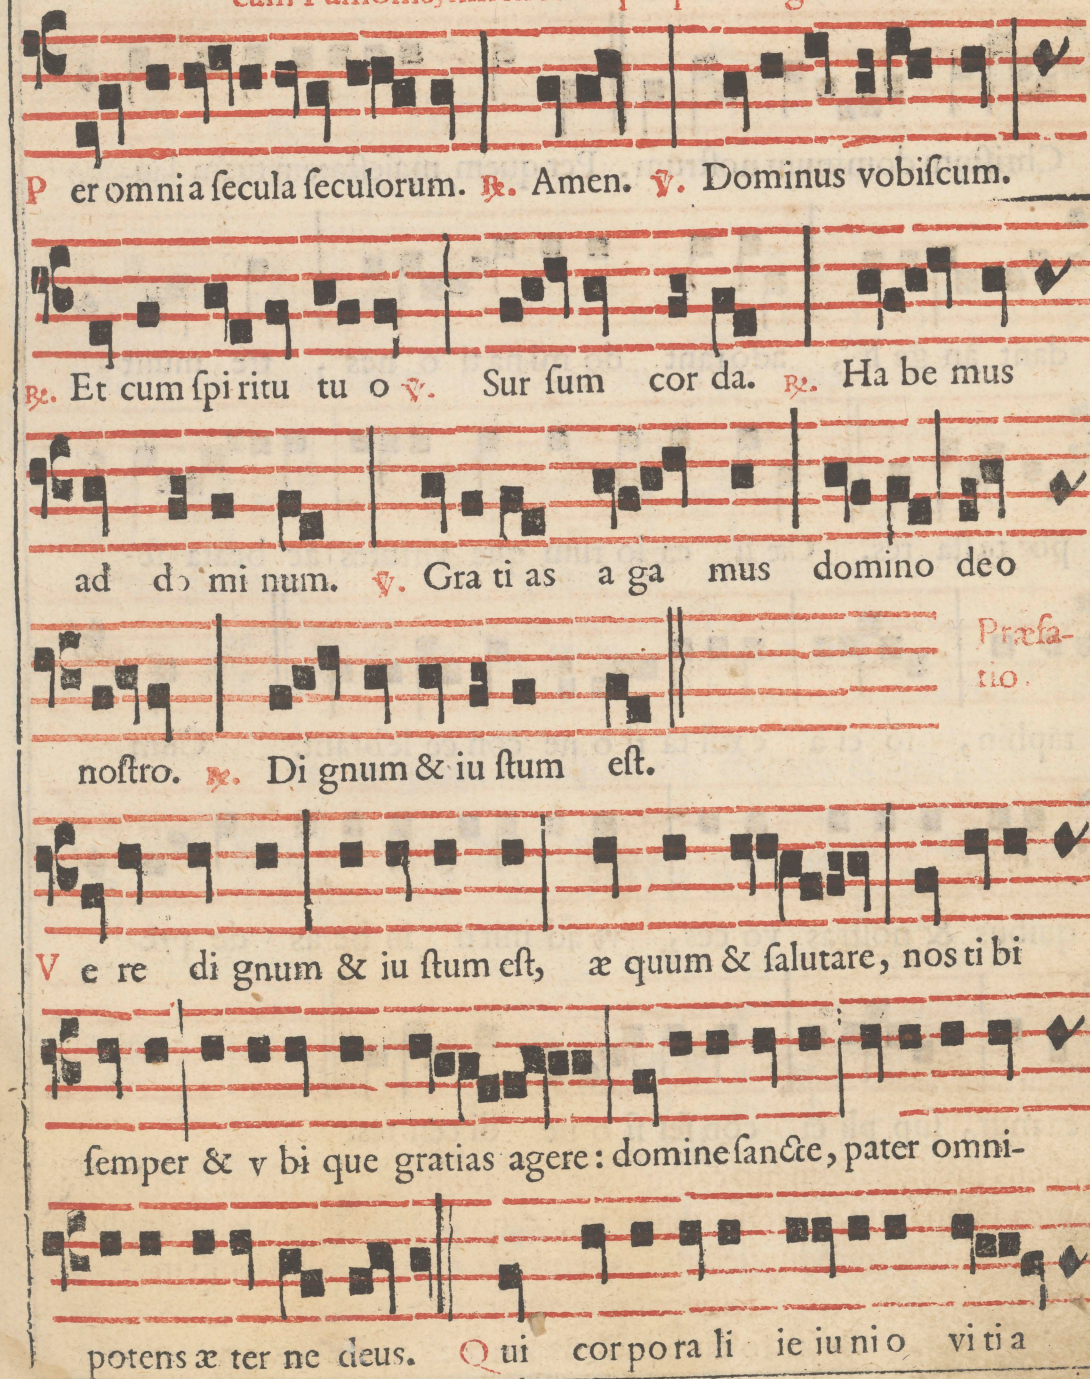 P er omni a ſecula ſeculorum. ℟. Amen. ℣. Dominus vobiſcum.
℟. Et cum ſpi ritu tu o ℣. Sur ſum cor da. ℟. Ha be mus
ad do mi num. ℣. Gra ti as a ga mus domino deo
Præfa-
tio.
noſtro. ℟. Di gnum & iu ſtum eſt.
V e re di gnum & iu ſtum eſt, æ quum & ſalutare, nos ti bi
ſemper & v bi que gratias agere: domine ſancte, pater omni-
potens æ ter ne deus. Q ui cor po ra li ie iu ni o vi ti a